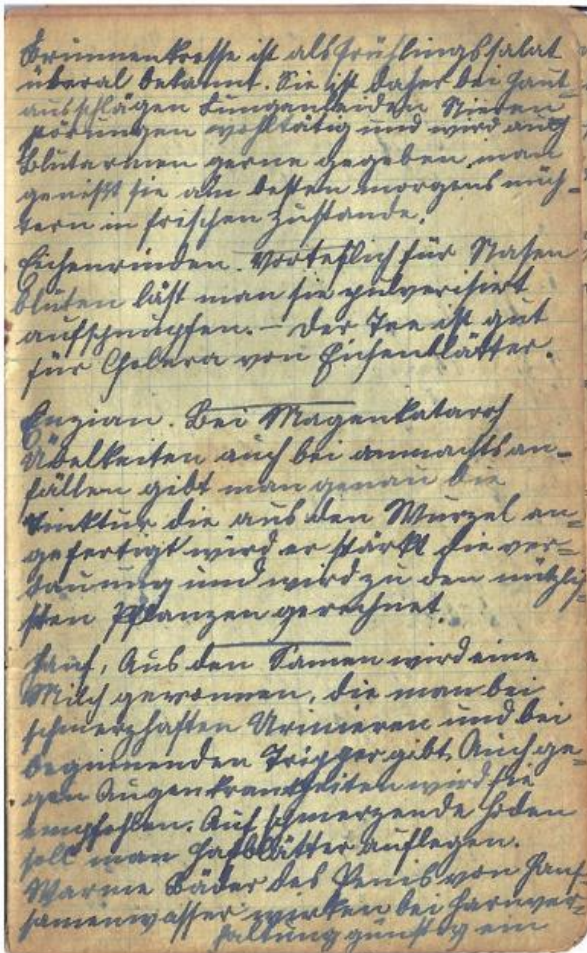 Brunnenkresse ist als frühlingssalat
überal bekannt. Sie ist daher bei Haut-
ausschlägen Lungenleiden Nieren
störungen wohltätig und wird auch
Blutarmen gerne gegeben man
genißt sie am besten morgens nüch-
tern in frischen Zustande.
Eichenrinden. Vorteflich für Nasen
bluten läst man sie pulverisirt
aufschnupfen. – Der Tee ist gut
für Cholera von Eichenblätter.
Enzian. Bei Magenkatarrh
Übelkeiten auch bei anmachtsan-
fällen gibt man genau die
Tinktur die aus den Wurzel an-
gefertigt wird er stärkt die ver-
dauung und wird zu den nützlich-
sten Pflanzen gerechnet.
Hanf, Aus den Samen wird eine
Milch gewonnen, die man bei
schmerzhaften Urinieren und bei
beginnenden Tripper gibt. Auch ge-
gen Augenkrankheiten wird sie
empfohlen. Auf schmerzende Hoden
soll man Hafblätter auflegen.
Warme Bäder des Penis von Hanf
samenwasser wirken bei Harnver-
haltung günstig ein